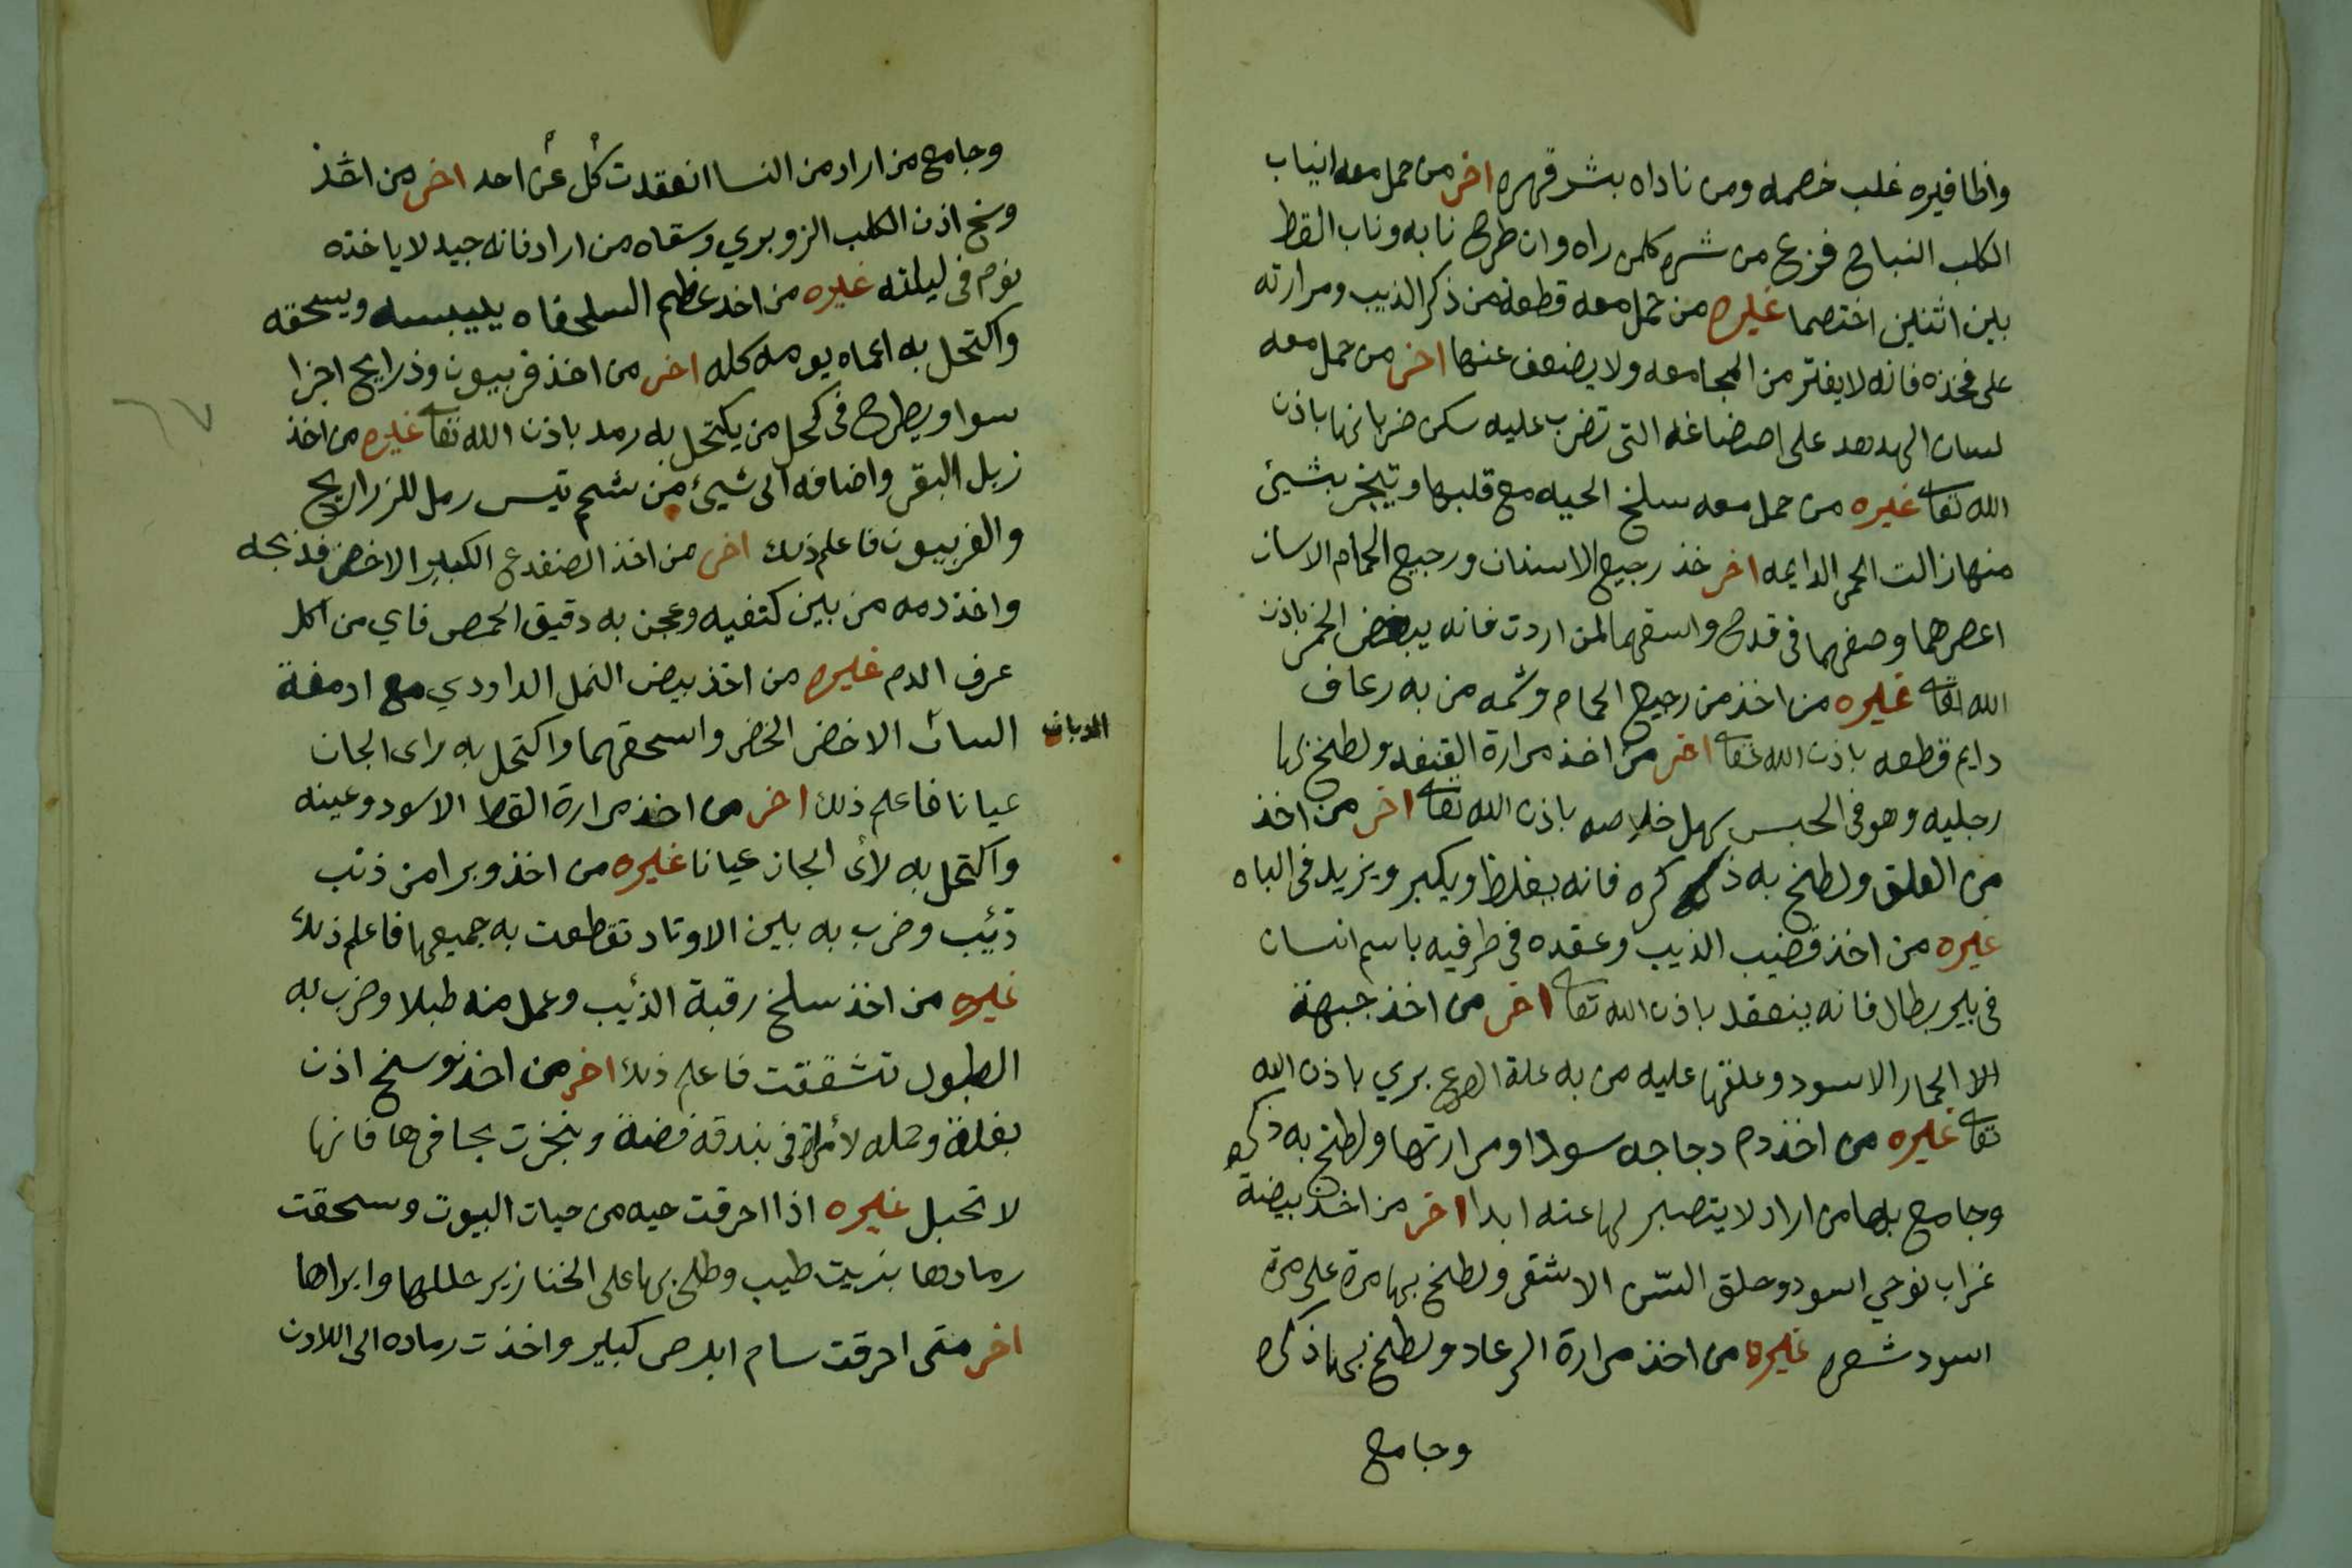 واظافيره غلب خصمه ومن ناداه بشر قهره اخر من حمل معه انياب
الكلب النباح فزع من شره كلمن راه وان طرح نابه وناب القط
بين اثنين اختصما غيره من حمل معه قطعة من ذكر الذيب ومرارته
على فخذه فانه لا يفتر من المجامعه ولا يضعف عنها اخر من حمل معه
لسان الهدهد على التى تضرب عليه سكن ضربانها باذن
الله تعا غيره من حمل معه سلخ الحيه مع قلبها وتبخر بشيئ
منها زالت الحمى الدايمه اخر خذ رجيع الاسنان ورجيع الحمام الاسان
اعصرهما وصفهما فى قدح واسقهما لمن اردت فانه يبغض الخمر باذن
الله تعا غيره من اخذ من رجيع الحمام وشمه من به رعاف
دايم قطعه باذن الله تعا اخر من اخذ مرارة القنفد ولطخ بها
رجليه وهو فى الحبس سهل خلاصه باذن الله تعا اخر من اخذ
من العلق ولطخ به ذكره فانه يغلظ ويكبر ويزيد فى الباه
غيره من اخذ قضيب الذيب وعقده فى طرفيه باسم انسان
فى بير بطال فانه ينعقد باذن الله تعا اخر من اخذ جبهة
الا الحمار الاسود وعلقها عليه من به علة الصرع بري باذن الله
تعا غيره من اخذ دم دجاجه سودا ومرارتها ولطخ به ذكره
وجامع بها من اراد لا يتصبر لها عنه ابدا اخر من اخذ بيضة
غراب نوحي اسود وحلق الاشقر ولطخ بها مرة على مرة
اسود شعره غيره من اخذ مرارة الرعاد ولطخ بها ذكره
وجامع
وجامع من اراد من النسا انعقدت كل عن احد اخر من اخذ
وسخ اذن الكلب الزوبري وسقاه من اراد فانه جيد لا ياخذه
نوم فى ليلته غيره من اخذ عظم السلحفاه ييبسه ويسحقه
واكتحل به اعماه يومه كله اخر من اخذ فربيون وذراريح اجزا
سوا ويطرح فى كحل من يكتحل به رمد باذن الله تعا غيره من اخذ
زبل البقر واضافه الى شيئ من شحم تيس رمل للزراريح
والفربيون فاعلم ذلك اخر من اخذ الضفدع الكبير الاخضر فذبحه
واخذ دمه من بين كتفيه وعجن به دقيق الحمص فاي من اكل
عرف الدم غيره من اخذ بيض النمل الداودي مع ادمغة
الاخضر الخضر واسحقهما واكتحل به راى الجان
عيانا فاعلم ذلك اخر من اخذ مرارة القط الاسود وعينه
واكتحل به لأى الجان عيانا غيره من اخذ وبرا من ذنب
ذئيب وضرب به بين الاوتاد تقطعت به جميعها فاعلم ذلك
غيره من اخذ سلخ رقبة الذئيب وعمل منه طبلا وضرب به
الطبول تشققت فاعلم ذلك اخر من اخذ وسخ اذن
بغلة وحمله لأمراة فى بندقه فضة وبخرت بحافرها فانها
لا تحبل غيره اذا احرقت حيه من حيات البيوت وسحقت
رمادها بزيت طيب وطلى بها على الخنازير حللها وابراها
اخر متى احرقت سام ابرص كبير واخذت رماده الى اللادن